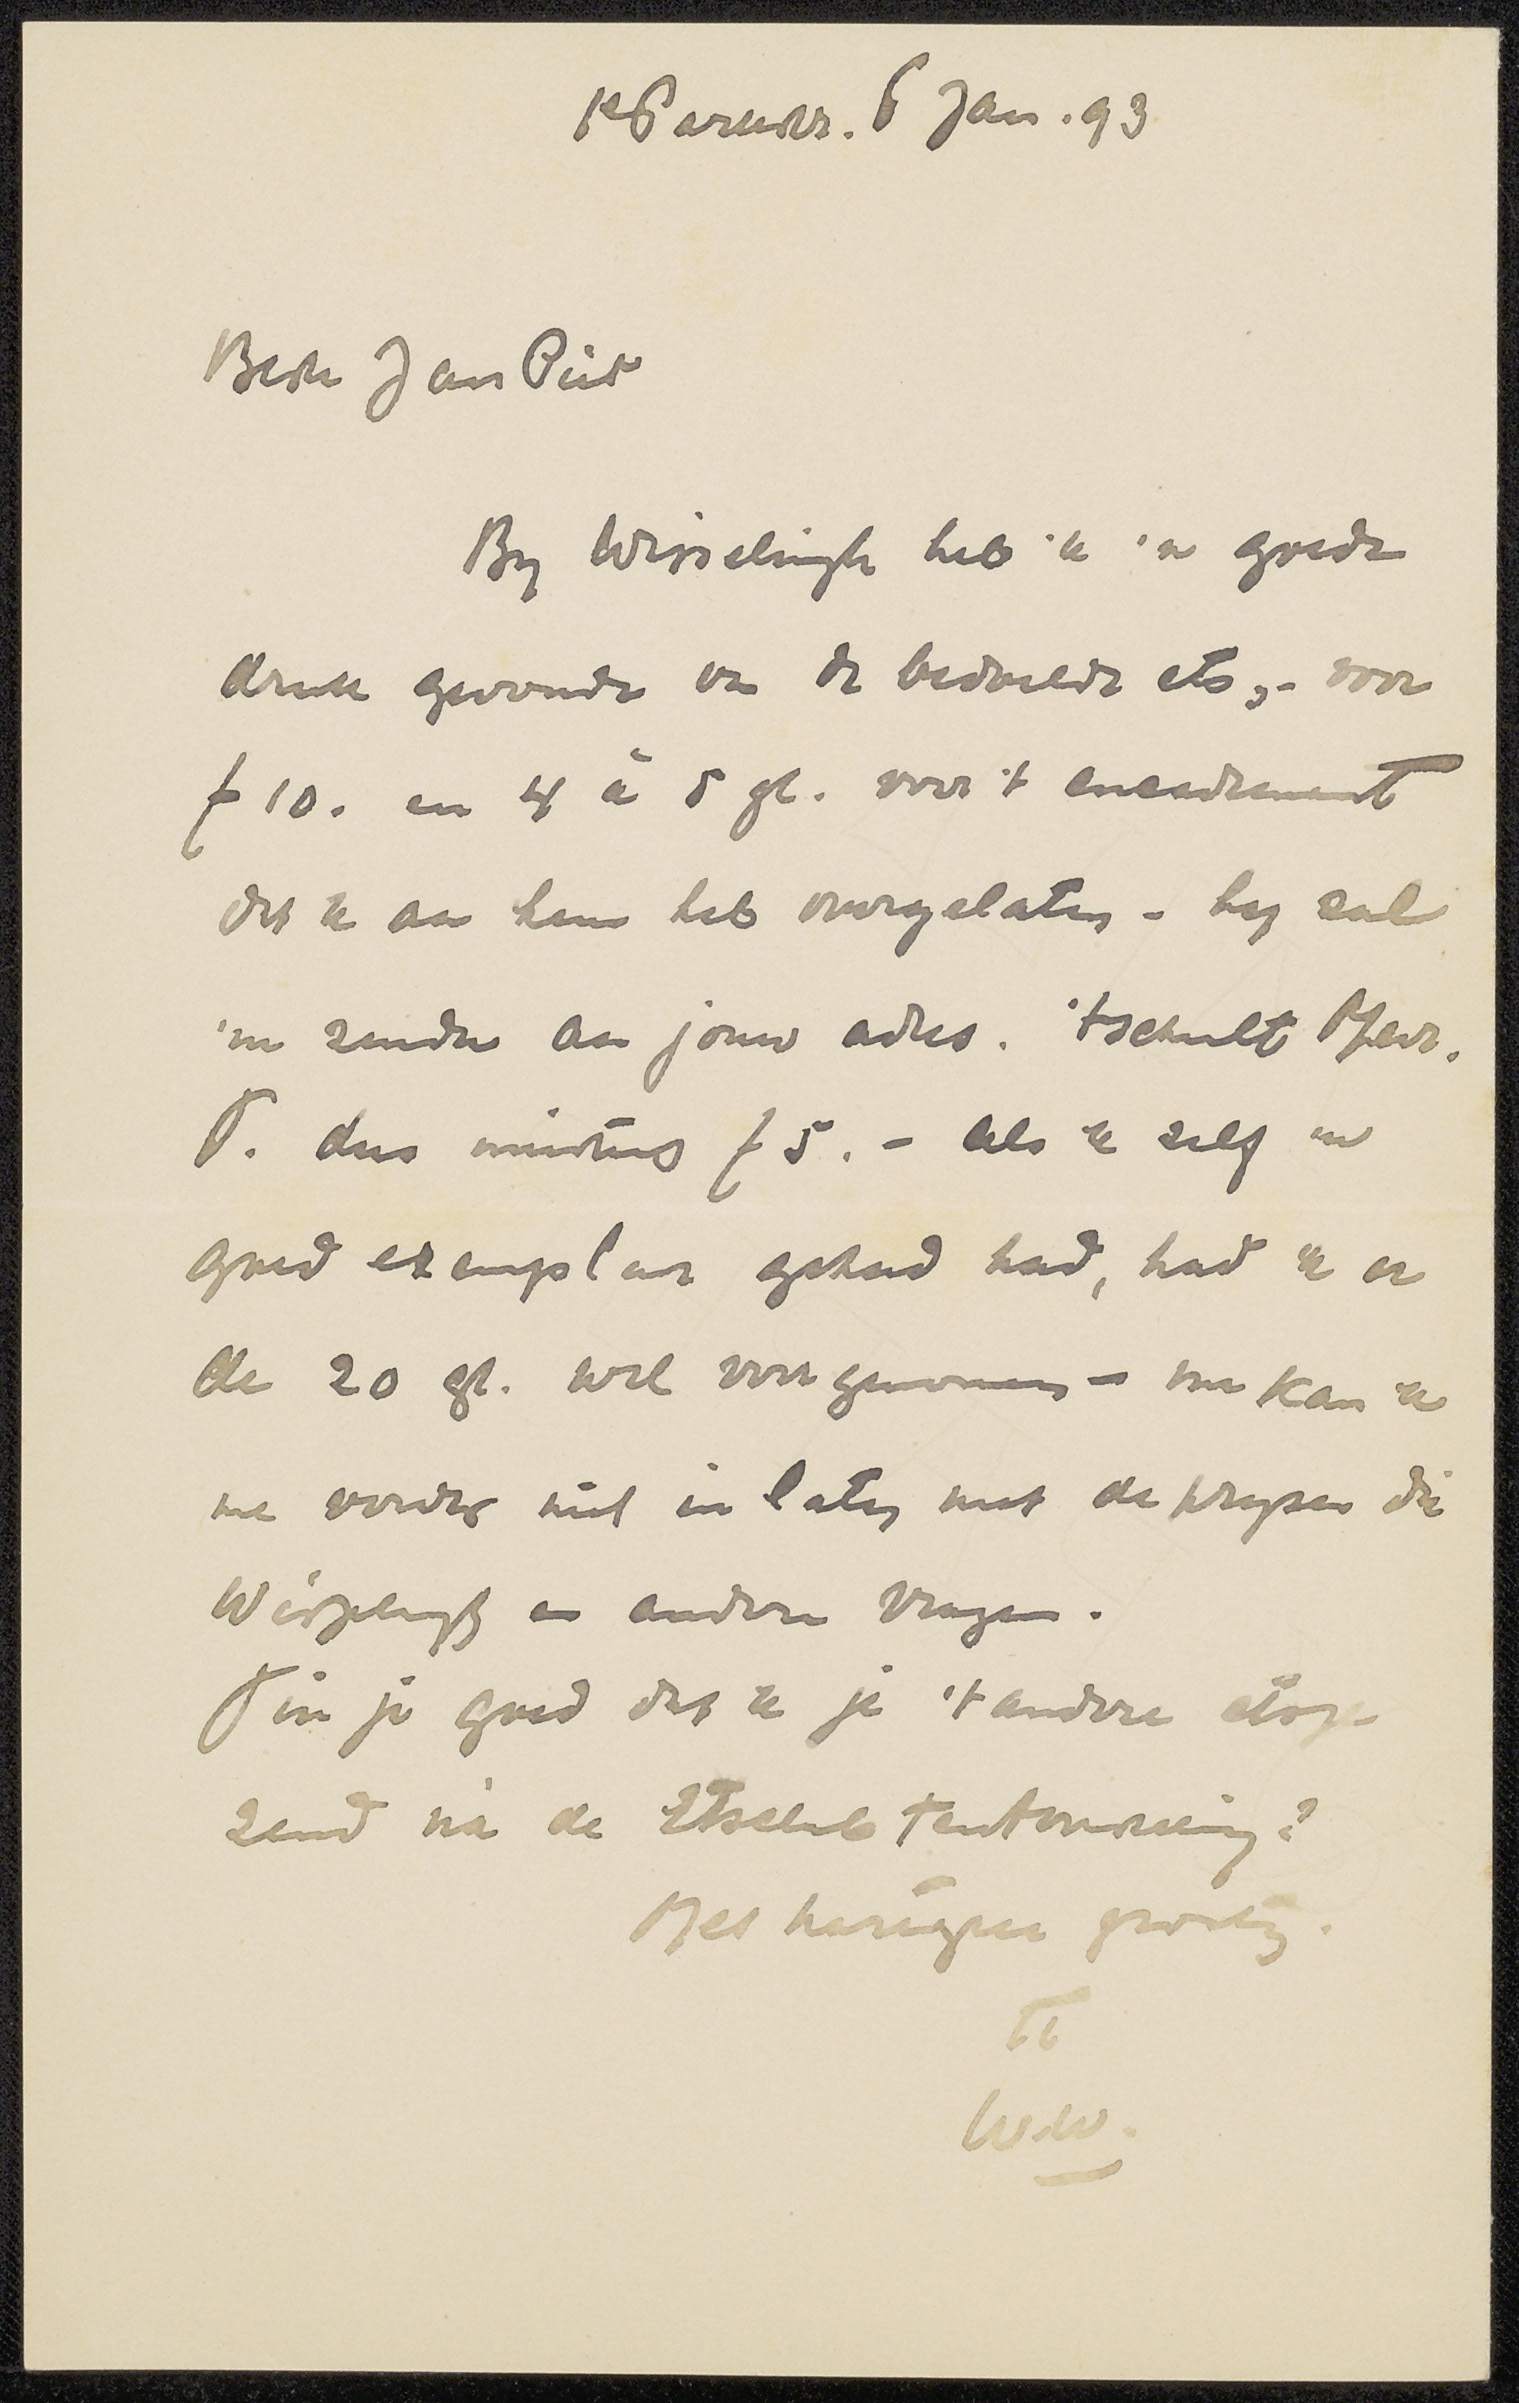 6 Jan. 93
Beste Jan Piet
By Wisselingh heb 'k 'n goede
druk gevonde van de bedoelde ets, - voor
f 10. en 4 à 5 gl. voor 't encadrement
dat 'k aan hem heb overgelaten - hy zal
'm zenden aan jouw adres. 't scheelt Mevr.
T. dus minstens f 5. - Als 'k zelf 'n
goed exemplaar gehad had, had 'k er
de 20 gl. wel voor genomen - nu kan 'k
me verder niet in laten met de pryzen die
Wisselingh en andere vragen.
Vin je goed dat 'k je 't andere etsje
zend ná de Etsclub tentoonstelling?
Met hartigen groeten.
tt
W.W.